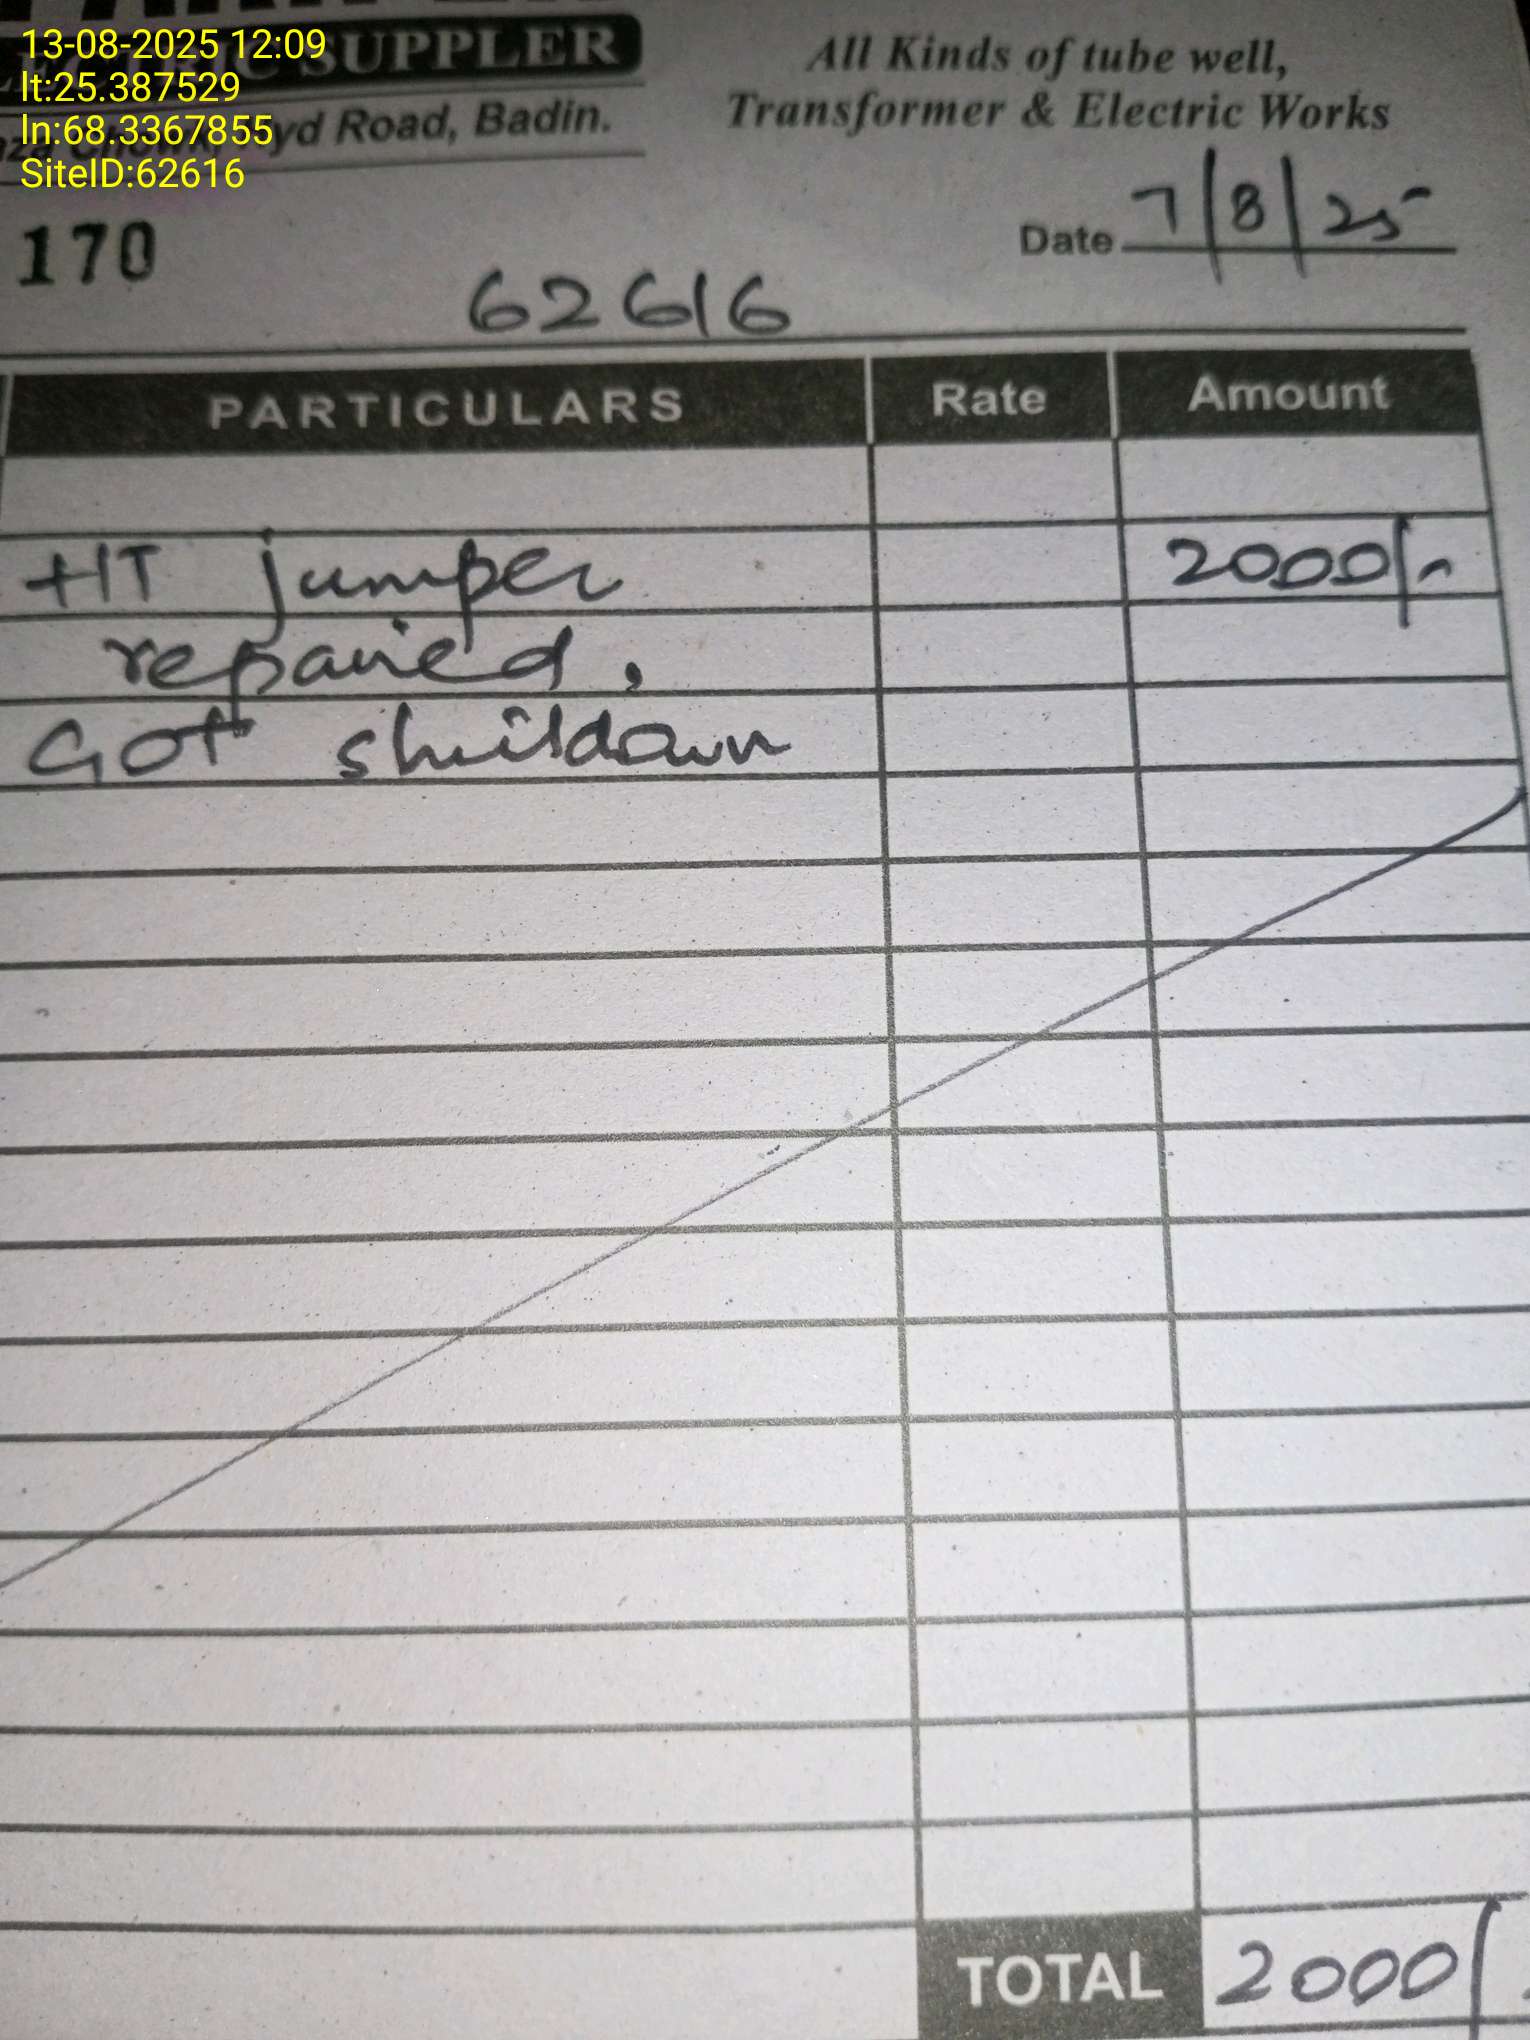 13-08-2025 12:09
lt:25.387529
ln:68.3367855
SiteID:62616
SUPPLER
Road, Badin.
All Kinds of tube well,
Transformer & Electric Works
170
Date 7/8/25
62616
PARTICULARS Rate Amount
HT jumper 2000/-
reparied,
Got shuildown
TOTAL 2000/